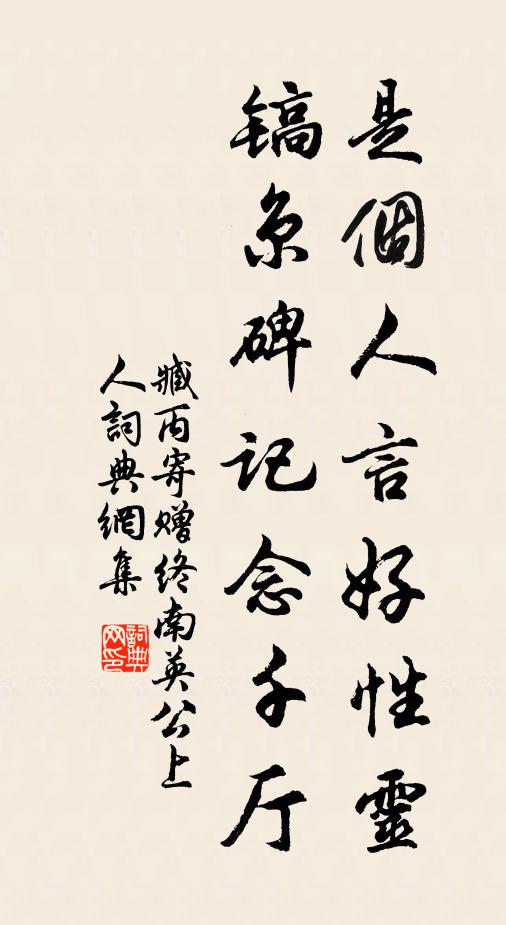 是個人言好性靈
镐京碑记念千厅
臧丙寄赠终南英公上
人詞典網集
詞典網印